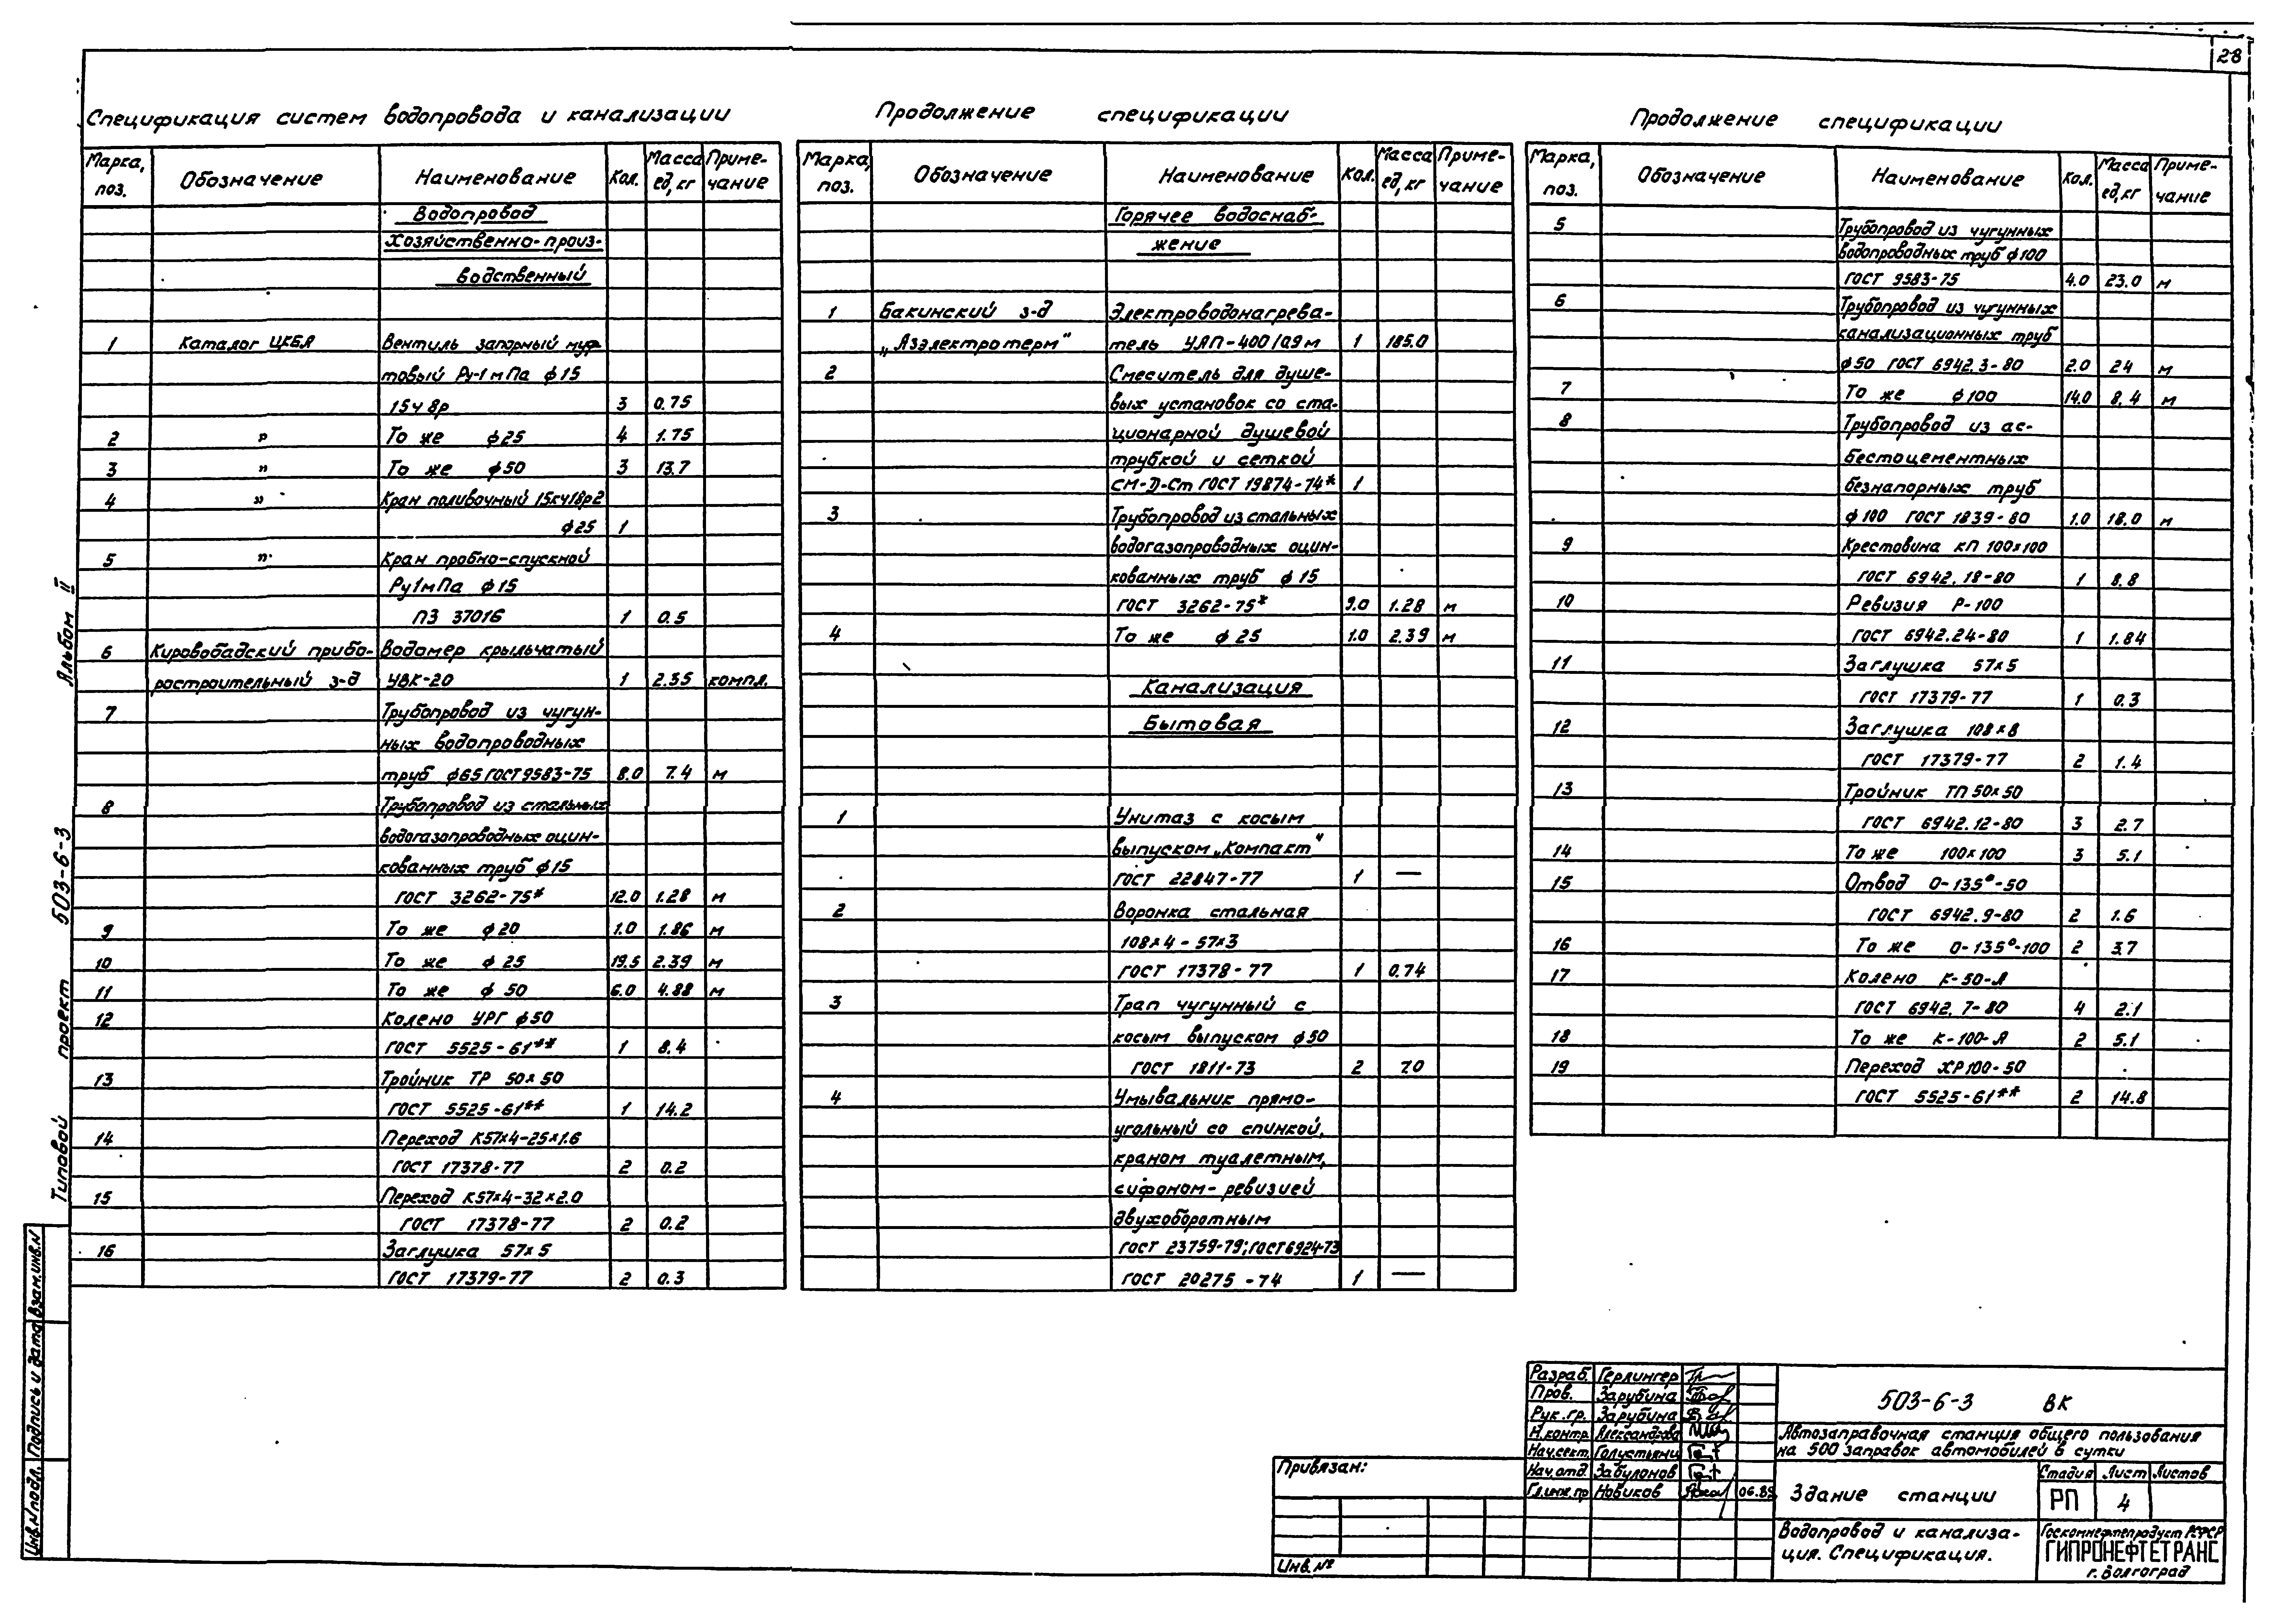 28
Спецификация систем водопровода и канализации
Марка, поз. Обозначение Наименование Кол. Масса ед, кг Приме- чание
Водопровод
хозяйственно-произ-
водственный
1 Каталог ЦКБА Вентиль запорный муф
товый Ру-1 мПа ф15
15ч 8р 3 0.75
2 " То же ф25 4 1.75
3 " То же ф50 3 13.7
4 " Кран поливочный 15кч18р2
ф25 1
5 " Кран пробно-спускной
Ру1мПа ф15
ПЗ 37016 1 0.5
6 Кировобадский прибо- Водомер крыльчатый
ростроительный з-д УВК-20 1 2.35 компл.
7 Трубопровод из чугун-
ных водопроводных
труб ф65 ГОСТ 9583-75 8.0 7.4 м
8 Трубопровод из стальных
водогазопроводных оцин-
кованных труб ф15
ГОСТ 3262-75* 12.0 1.28 м
9 То же ф20 1.0 1.86 м
10 То же ф25 19.5 2.39 м
11 То же ф 50 6.0 4.88 м
12 Колено УРГ ф50
ГОСТ 5525-61** 1 8.4
13 Тройник ТР 50х50
ГОСТ 5525-61** 1 14.2
14 Переход К57х4-25х1.6
ГОСТ 17378-77 2 0.2
15 Переход К57х4-32х2.0
ГОСТ 17378-77 2 0.2
16 Заглушка 57х5
ГОСТ 17379-77 2 0.3
Продолжение спецификации
Марка, поз. Обозначение Наименование Кол. Масса ед, кг Приме- чание
Горячее водоснаб-
жение
1 Бакинский з-д Электроводонагрева-
„Азэлектротерм" тель УАП-400/0.9 м 1 185.0
2 Смеситель для душе-
вых установок со ста-
ционарной душевой
трубкой и сеткой
СМ-Д-Ст ГОСТ 19874-74* 1
3 Трубопровод из стальных
водогазопроводных оцин-
кованных труб ф 15
ГОСТ 3262-75* 9.0 1.28 м
4 То же ф 25 1.0 2.39 м
Канализация
Бытовая
1 Унитаз с косым
выпуском „Компакт"
ГОСТ 22847-77 1 —
2 Воронка стальная
108х4-57х3
ГОСТ 17378-77 1 0.74
3 Трап чугунный с
косым выпуском ф50
ГОСТ 1811-73 2 7.0
4 Умывальник прямо-
угольный со спинкой,
краном туалетным,
сифоном-ревизией
двухоборотным
ГОСТ 23759-79; ГОСТ 6924-73
ГОСТ 20275-74 1 —
Продолжение спецификации
Марка, поз. Обозначение Наименование Кол. Масса ед, кг Приме- чание
5 Трубопровод из чугунных
водопроводных труб ф100
ГОСТ 9583-75 4.0 23.0 м
6 Трубопровод из чугунных
канализационных труб
ф50 ГОСТ 6942.3-80 2.0 24 м
7 То же ф100 14.0 8.4 м
8 Трубопровод из ас-
бестоцементных
безнапорных труб
ф 100 ГОСТ 1839-80 1.0 18.0 м
9 Крестовина КП 100х100
ГОСТ 6942.18-80 1 8.8
10 Ревизия Р-100
ГОСТ 6942.24-80 1 1.84
11 Заглушка 57х5
ГОСТ 17379-77 1 0.3
12 Заглушка 108х8
ГОСТ 17379-77 2 1.4
13 Тройник ТП 50х50
ГОСТ 6942.12-80 3 2.7
14 То же 100х100 3 5.1
15 Отвод О-135°-50
ГОСТ 6942.9-80 2 1.6
16 То же О-135°-100 2 3.7
17 Колено К-50-А
ГОСТ 6942.7-80 4 2.1
18 То же К-100-А 2 5.1
19 Переход ХР100-50
ГОСТ 5525-61** 2 14.8
Типовой проект 503-6-3 Альбом II
Инв.N подл. Подпись и дата Взам.инв.N
Привязан:
Инв.№
Разраб. Герлингер
Пров. Зарубина
Рук.гр. Зарубина
Н.контр. Александрова
Нач.сект. Галустьянц
Нач.отд. Забулонов
Гл.инж.пр Новиков
503-6-3 ВК
Автозаправочная станция общего пользования
на 500 заправок автомобилей в сутки
Здание станции
Стадия Лист Листов
РП 4
Водопровод и канализа-
ция. Спецификация.
Госкомнефтепродукт РСФСР
ГИПРОНЕФТЕТРАНС
г. Волгоград